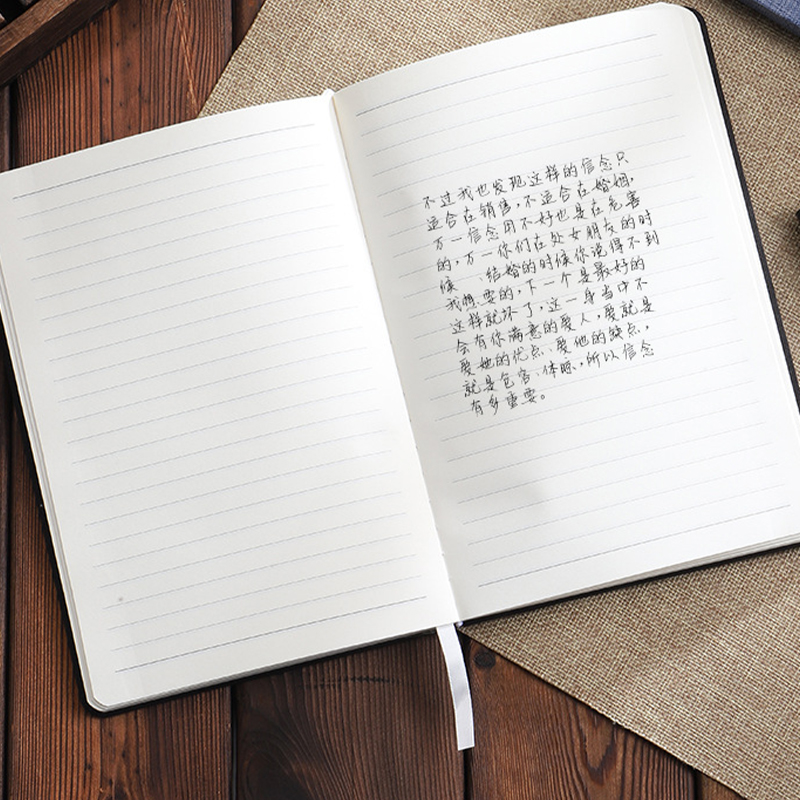 不过我也发现这样的信念只
适合在销售,不适合在婚姻,
万一信念用不好也是在危害
的,万一你们在处女朋友的时
候、结婚的时候你说得不到
我想要的,下一个是最好的
这样就坏了,这一身当中不
会有你满意的爱人,爱就是
爱她的优点、爱他的缺点,
就是包容、体晾,所以信念
有多重要。